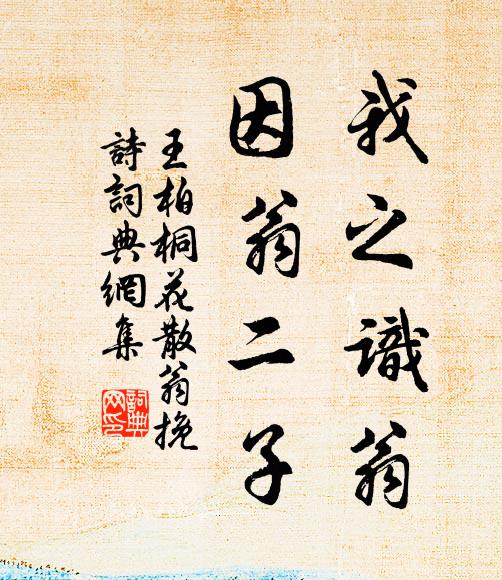 我之識翁
因翁二子
王柏桐花散翁挽
詩詞典網集
詞典
网印